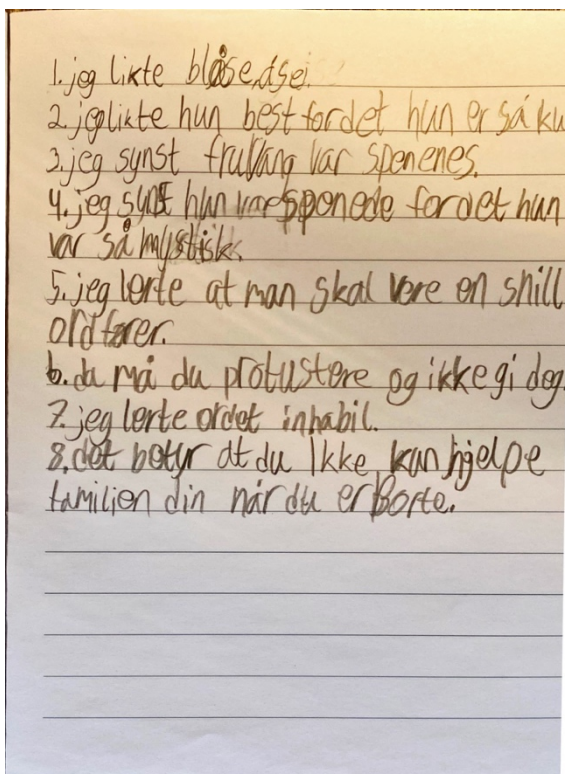 1. jeg likte blåse,dsei.
2. jeg likte hun best fordet hun er så ku
3. jeg synst fruvang var spenenes.
4. jeg synst hun var sponede fordet hun
var så mystisk.
5. jeg lerte at man skal vere en snill
ordfører.
6. da må du protustere og ikke gi deg.
7. jeg lerte ordet inhabil.
8. det botyr at du ikke kan hjelpe
familien din når du er Borte.